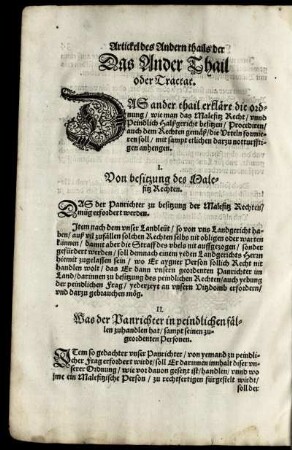 Artickel des Andern thails der
Das Ander Thail
oder Tractat.
DAS ander thail erkläre die ord-
nung / wie man das Malefitz Recht / vnnd
Peindlich Halßgericht besitzen / Procediren /
auch dem Rechten gemäß / die Vrteln formie-
ren soll / mit sampt etlichen darzu notturfftig-
en anhengen.
I.
Von besitzung des Male-
fitz Rechten.
DAS der Panrichter zu besitzung der Malefitz Rechten /
müg erfordert werden.
Item nach dem vnser Landleüt / so von vns Landgericht ha-
ben / auß vil zufällen solchen Rechten selbs nit obligen oder warten
künnen / damit aber die Straff des vbels nit auffgezogen / sonder
gefürdert werden / soll demnach einem yeden Landgerichts Herrn
hiemit zugelassen sein / wo Er aygner Person sollich Recht nit
handlen wolt / das Er dann vnsern geordenten Panrichter im
Land / darinnen zu besitzung des peindlichen Rechten / auch yebung
der peindlichen Frag / yederzeyt an vnsern Vitzdomb erfordern /
vnd darzu gebrauchen mög.
II.
Was der Panrichter in peindlichen fäl-
len zuhandlen hat / sampt seinen zu-
geordenten Personen.
Item so gedachter vnser Panrichter / von yemand zu peindli-
cher Frag erfordert wirdt / soll Er darinnen innhalt diser vn-
serer Ordnung / wie vor dauon gesetzt ist / handlen / vnnd wo
jme ein Malefitzische Person / zu rechtfertigen fürgestelt wirdt /
soll der